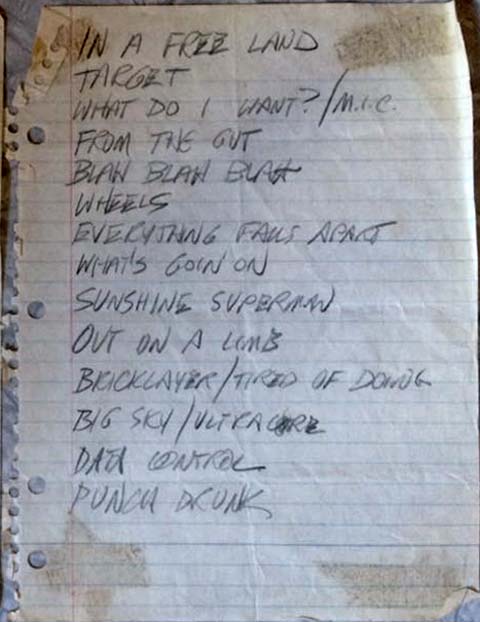 IN A FREE LAND
TARGET
WHAT DO I WANT?/M.I.C.
FROM THE GUT
BLAH BLAH BLAH
WHEELS
EVERYTHING FALLS APART
WHAT'S GOIN ON
SUNSHINE SUPERMAN
OUT ON A LIMB
BRICKLAYER/TIRED OF DOING
BIG SKY/ULTRACORE
DATA CONTROL
PUNCH DRUNK